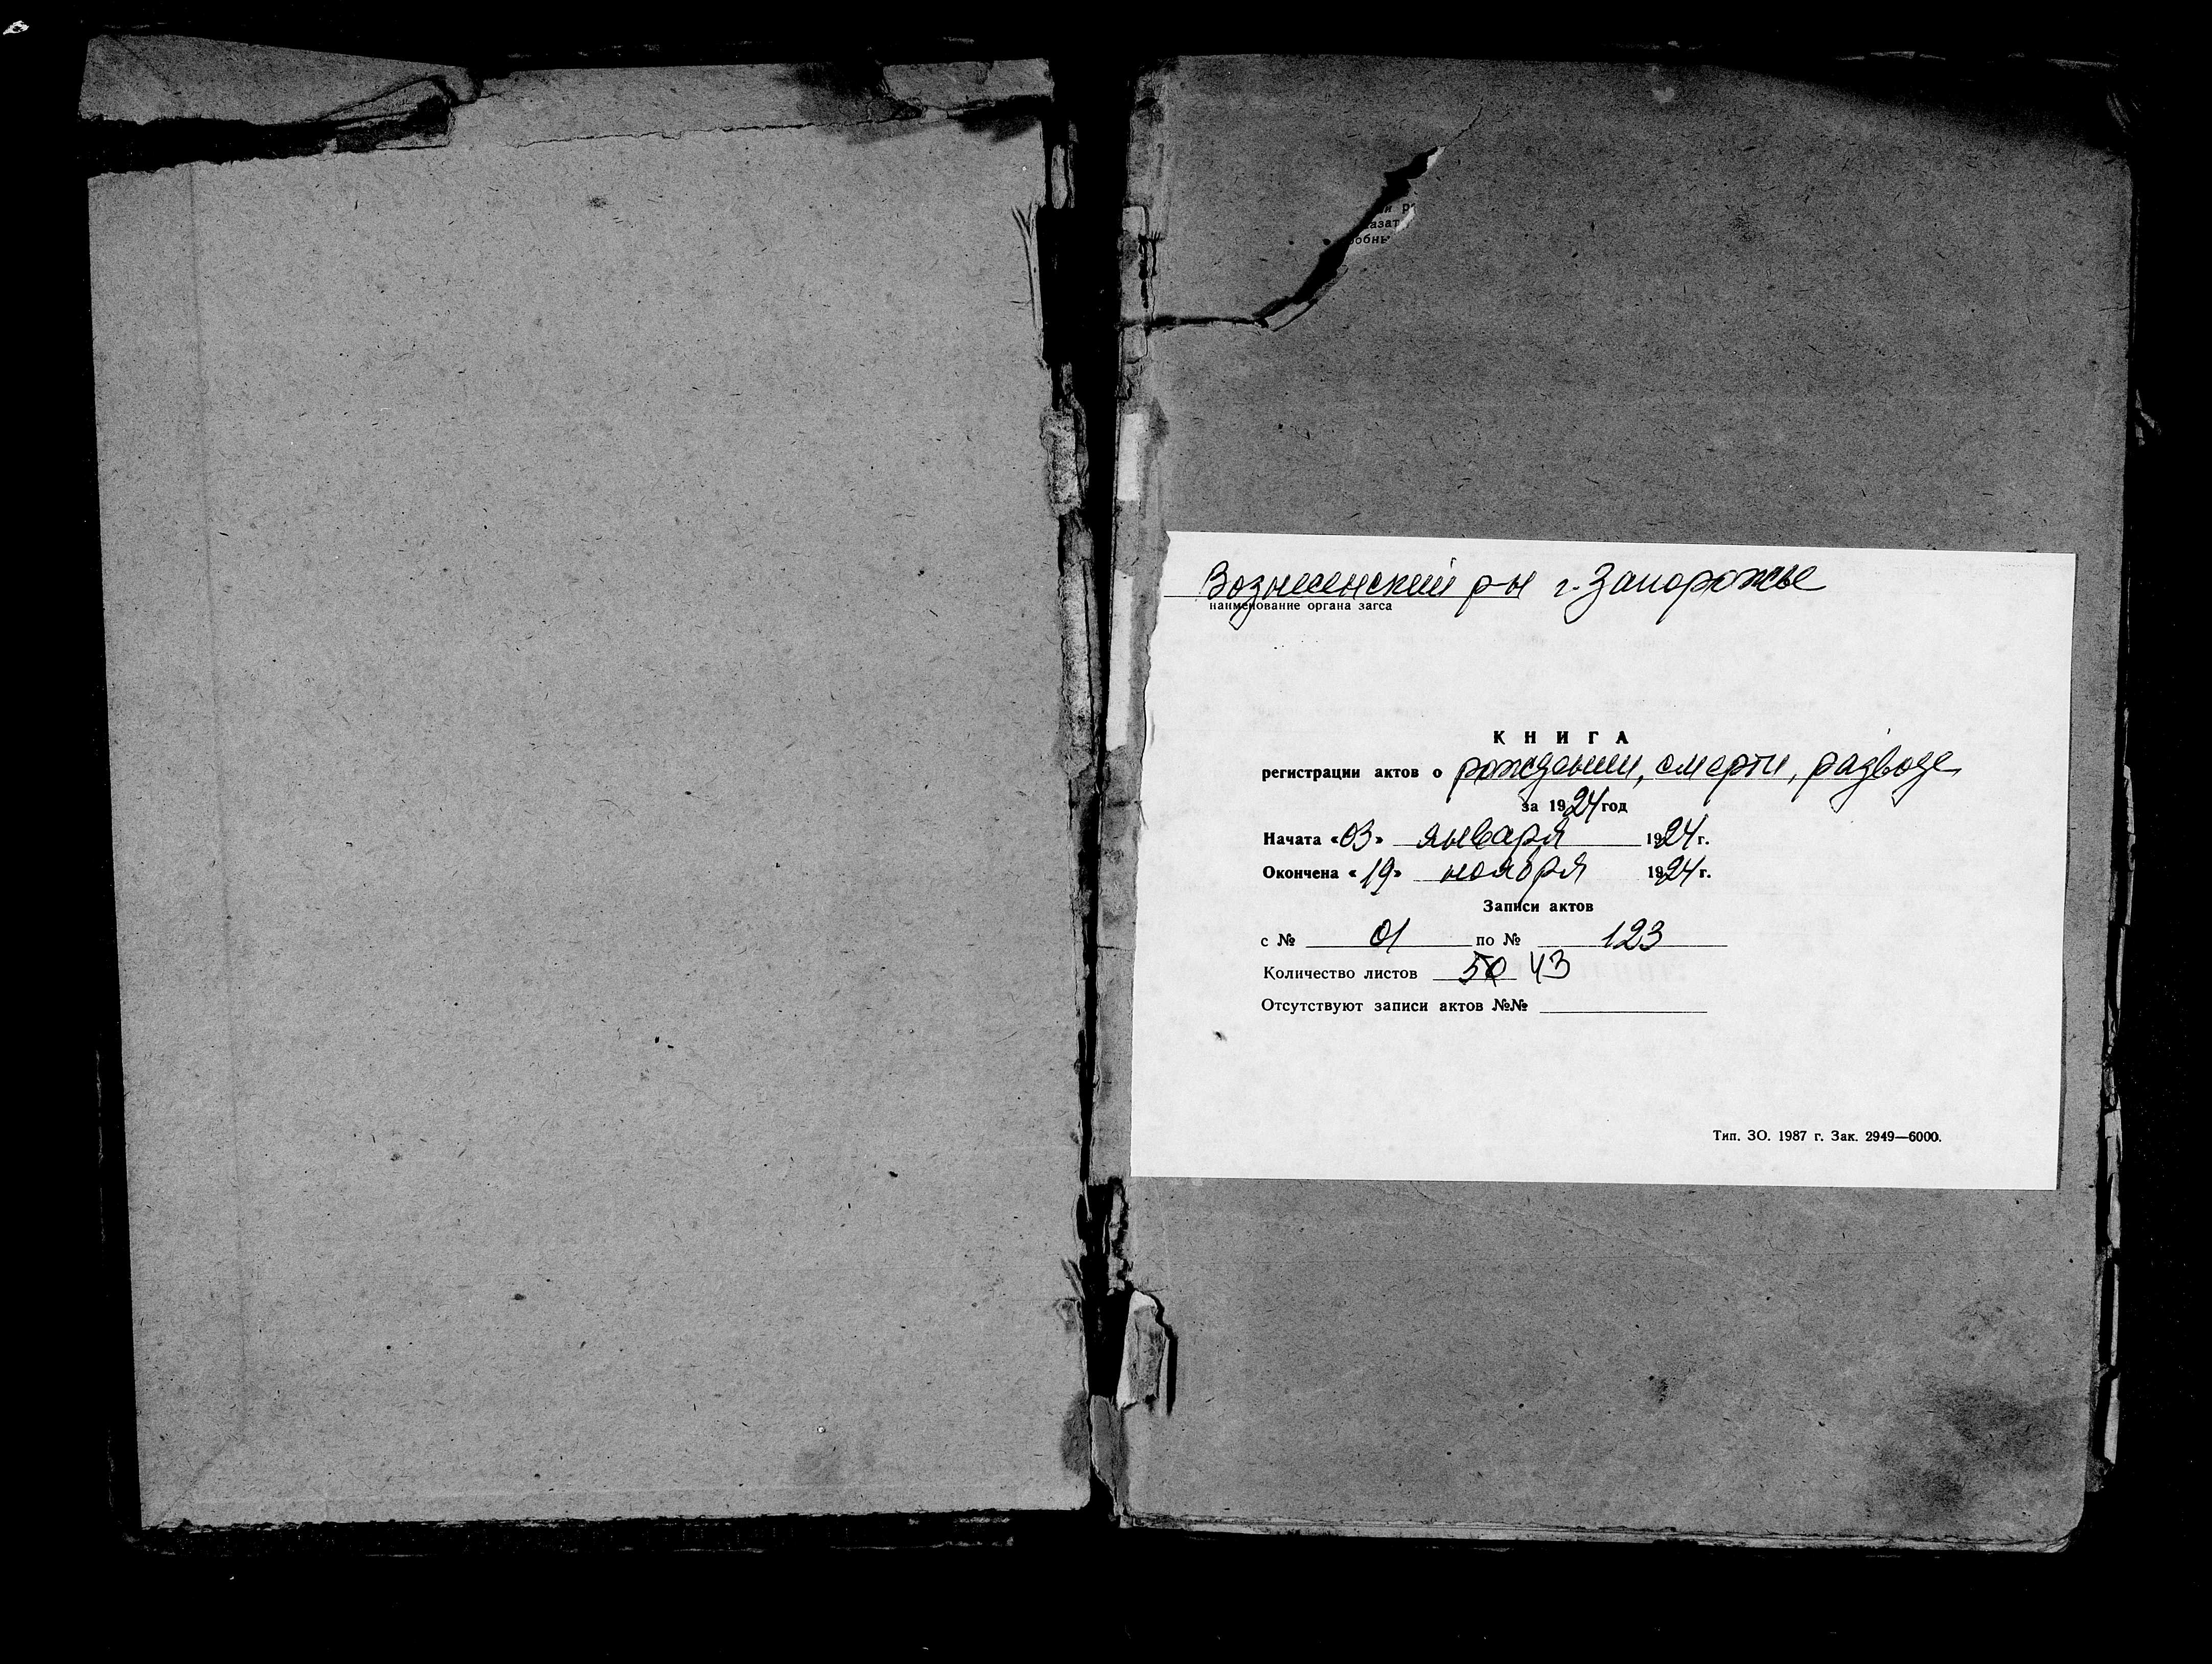 и р
азат
робны
Вознесенский р-н г. Запорожье
наименование органа загса
КНИГА
регистрации актов о рождении, смерти, разводе
за 1924 год
Начата «03» января 1924 г.
Окончена «19» ноября 1924 г.
Записи актов
с № 01 по № 123
Количество листов 50 43
Отсутствуют записи актов №№
Тип. ЗО. 1987 г. Зак. 2949—6000.